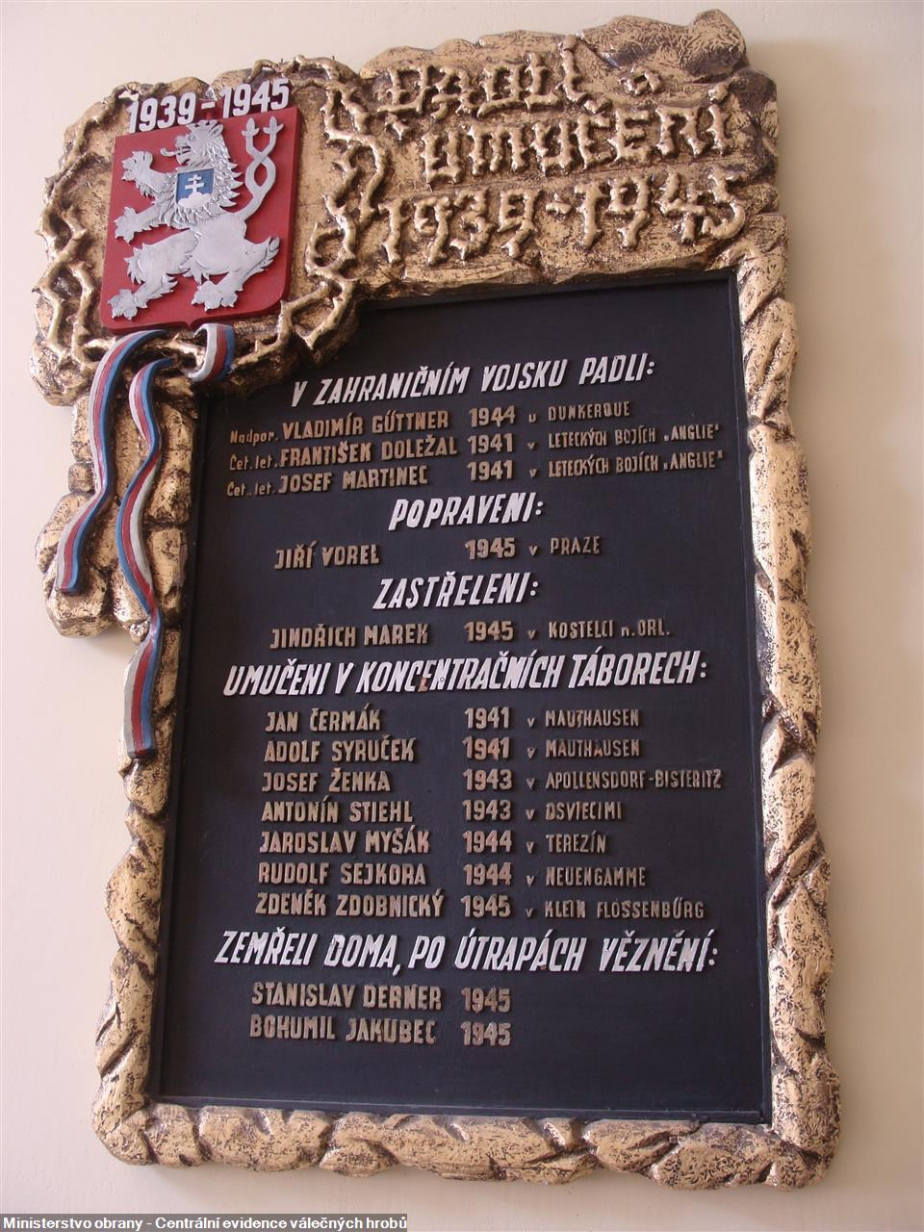 1939-1945
PADLÍ a
UMUČENÍ
1939-1945
V ZAHRANIČNÍM VOJSKU PADLI:
Nadpor. VLADIMÍR GÜTTNER 1944 u DUNKERQUE
Čet. let. FRANTIŠEK DOLEŽAL 1941 v LETECKÝCH BOJÍCH „ANGLIE"
Čet. let. JOSEF MARTINEC 1941 v LETECKÝCH BOJÍCH „ANGLIE"
POPRAVENI:
JIŘÍ VOREL 1945 v PRAZE
ZASTŘELENI:
JINDŘICH MAREK 1945 v KOSTELCI n. ORL.
UMUČENI V KONCENTRAČNÍCH TÁBORECH:
JAN ČERMÁK 1941 v MAUTHAUSEN
ADOLF SYRUČEK 1941 v MAUTHAUSEN
JOSEF ŽENKA 1943 v APOLLENSDORF-BISTERITZ
ANTONÍN STIEHL 1943 v OSVIECIMI
JAROSLAV MYŠÁK 1944 v TEREZÍN
RUDOLF SEJKORA 1944 v NEUENGAMME
ZDENĚK ZDOBNICKÝ 1945 v KLEIN FLOSSENBÜRG
ZEMŘELI DOMA, PO ÚTRAPÁCH VĚZNĚNÍ:
STANISLAV DERNER 1945
BOHUMIL JAKUBEC 1945
Ministerstvo obrany - Centrální evidence válečných hrobů